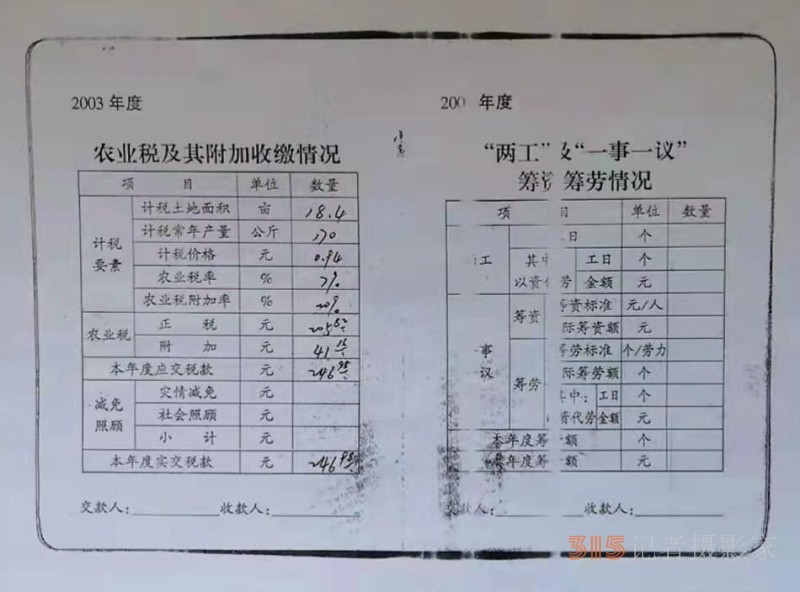 2003 年度
农业税及其附加收缴情况
项 目 单位 数量
计税要素 计税土地面积 亩 18.4
计税常年产量 公斤 170
计税价格 元 0.94
农业税率 % 7%
农业税附加率 % 20%
农业税 正 税 元 205.82
附 加 元 41.16
本年度应交税款 元 246.98
减免照顾 灾情减免 元
社会照顾 元
小 计 元
本年度实交税款 元 246.98
交款人: 收款人:
200 年度
“两工”及“一事一议”
筹资筹劳情况
项 目 单位 数量
工 工日 个
其中 工日 个
以资代劳 金额 元
事议 筹资 筹资标准 元/人
际筹资额 元
筹劳 筹劳标准 个/劳力
际筹劳额 个
其中: 工日 个
资代劳金额 元
本年度筹 额 个
本年度筹 额 元
交款人: 收款人:
315记者摄影家